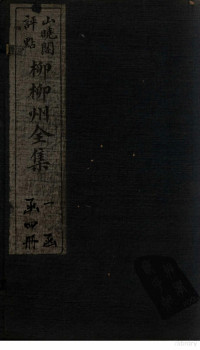 山曉閣
評點
柳柳州全集
一函
函四冊